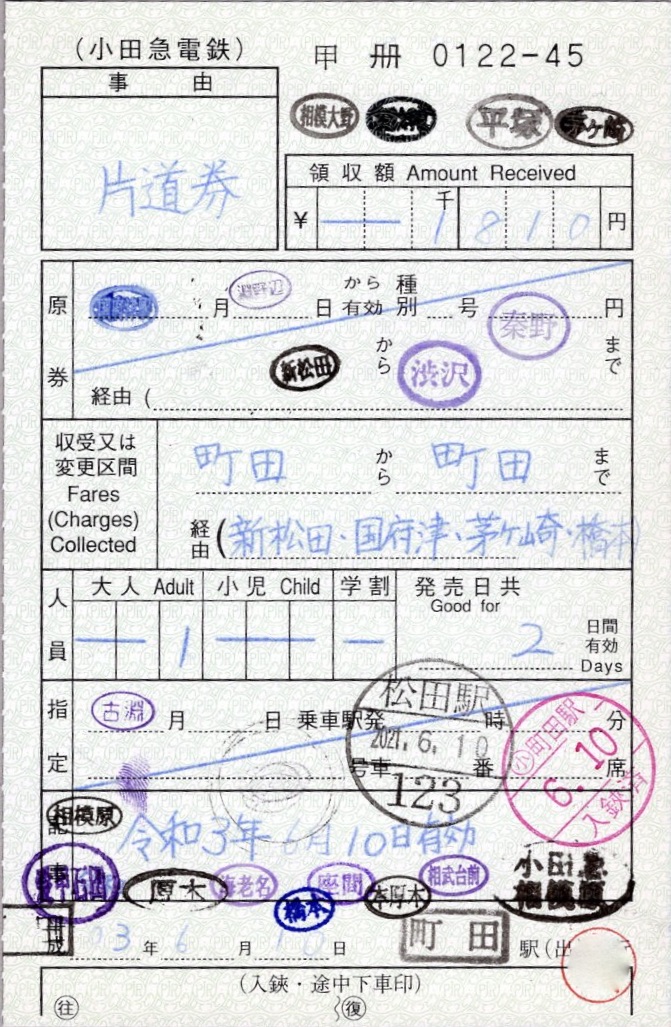 (小田急電鉄)
甲 册 0122-45
事 由
片道券
相模大野
平塚
茅ヶ崎
領収額 Amount Received
千
¥ 1810 円
原券
月
淵野辺
日
から有効
種別
号
円
秦野
新松田
から
渋沢
まで
経由 (
収受又は
変更区間
Fares
(Charges)
Collected
町田 から 町田 まで
経由 (新松田・国府津、茅ヶ崎・橋本
人員
大人 Adult 小児 Child 学割
1
発売日共
Good for
2
日間
有効
Days
指定
古淵
月 日 乗車駅発 時 分
号車 番 席
松田駅
2021.6.10
123
㋛町田駅
6.10
入鋏済
相模原
記事
令和3年6月10日有効
愛甲石田
厚木
海老名
座間
相武台前
小田急
相模原
橋本
本厚木
作成
03 年 6 月 10 日
町田
駅(出
(入鋏・途中下車印)
往
復